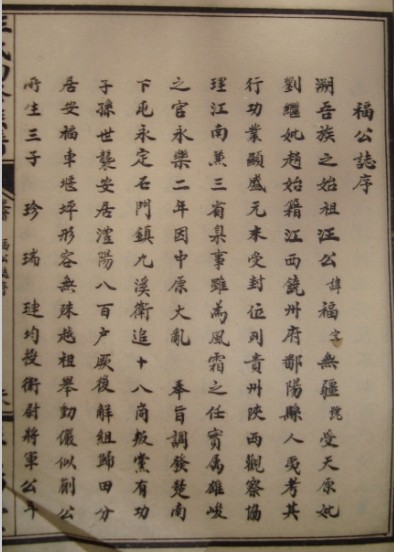 福公誌序
溯吾族之始祖汪公諱福字無疆號受天原妣
劉繼妣趙始籍江西饒州府鄱陽縣人戔考其
行功業顯盛元末受封位列貴州陝西觀察協
理江南兼三省臬事雖為風霜之任實属雄峻
之官永樂二年因中原大亂 奉旨調發楚南
下屯永定石門鎮九溪衛追十八崗叛黨有功
子孫世襲安居澧陽八百户厥後解組歸田分
居安福車堰坪形容無殊越祖舉動儼似前公
所生三子 珍 瑞 琏均授衛尉將軍公卒
福公誌序